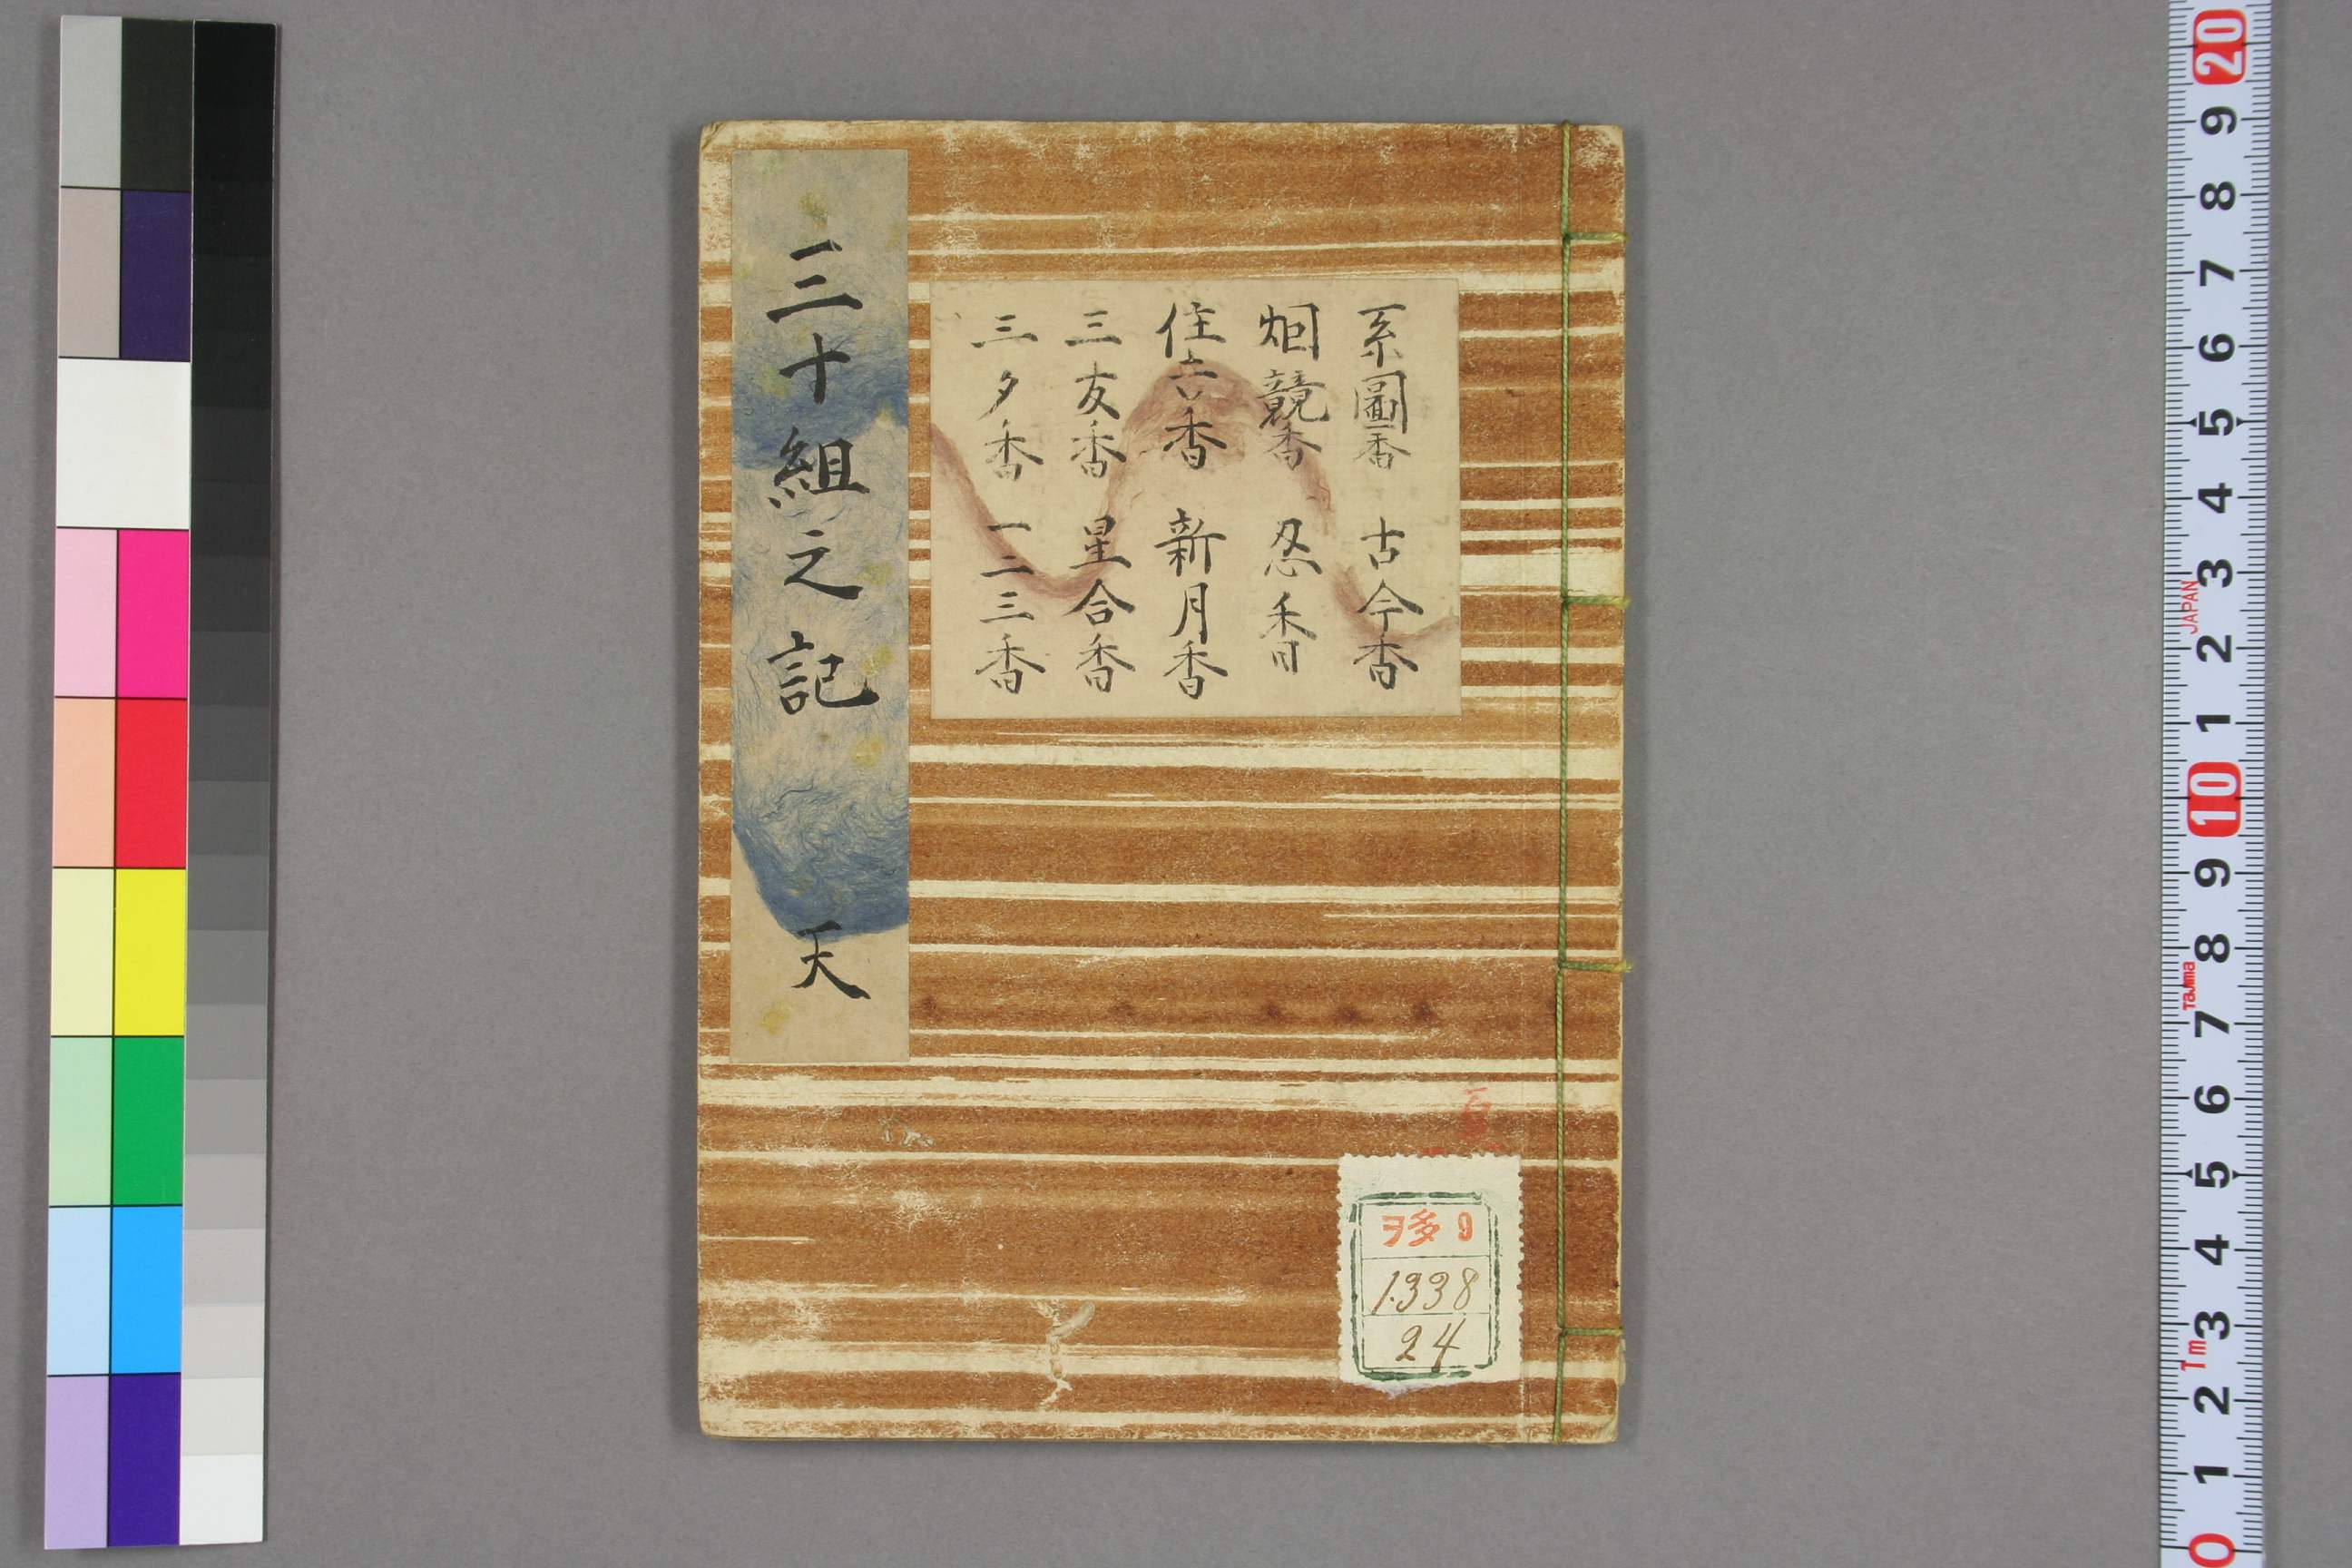 三十組之記 天
系圖香 古今香
烟競香 忍香
住吉香 新月香
三友香 星合香
三夕香 一二三香
ヲ多9
1.338
24
20
9
8
7
6
5
4
3
JAPAN
2
1
10
9
8
Tajima
7
6
5
4
3
1m
2
1
0